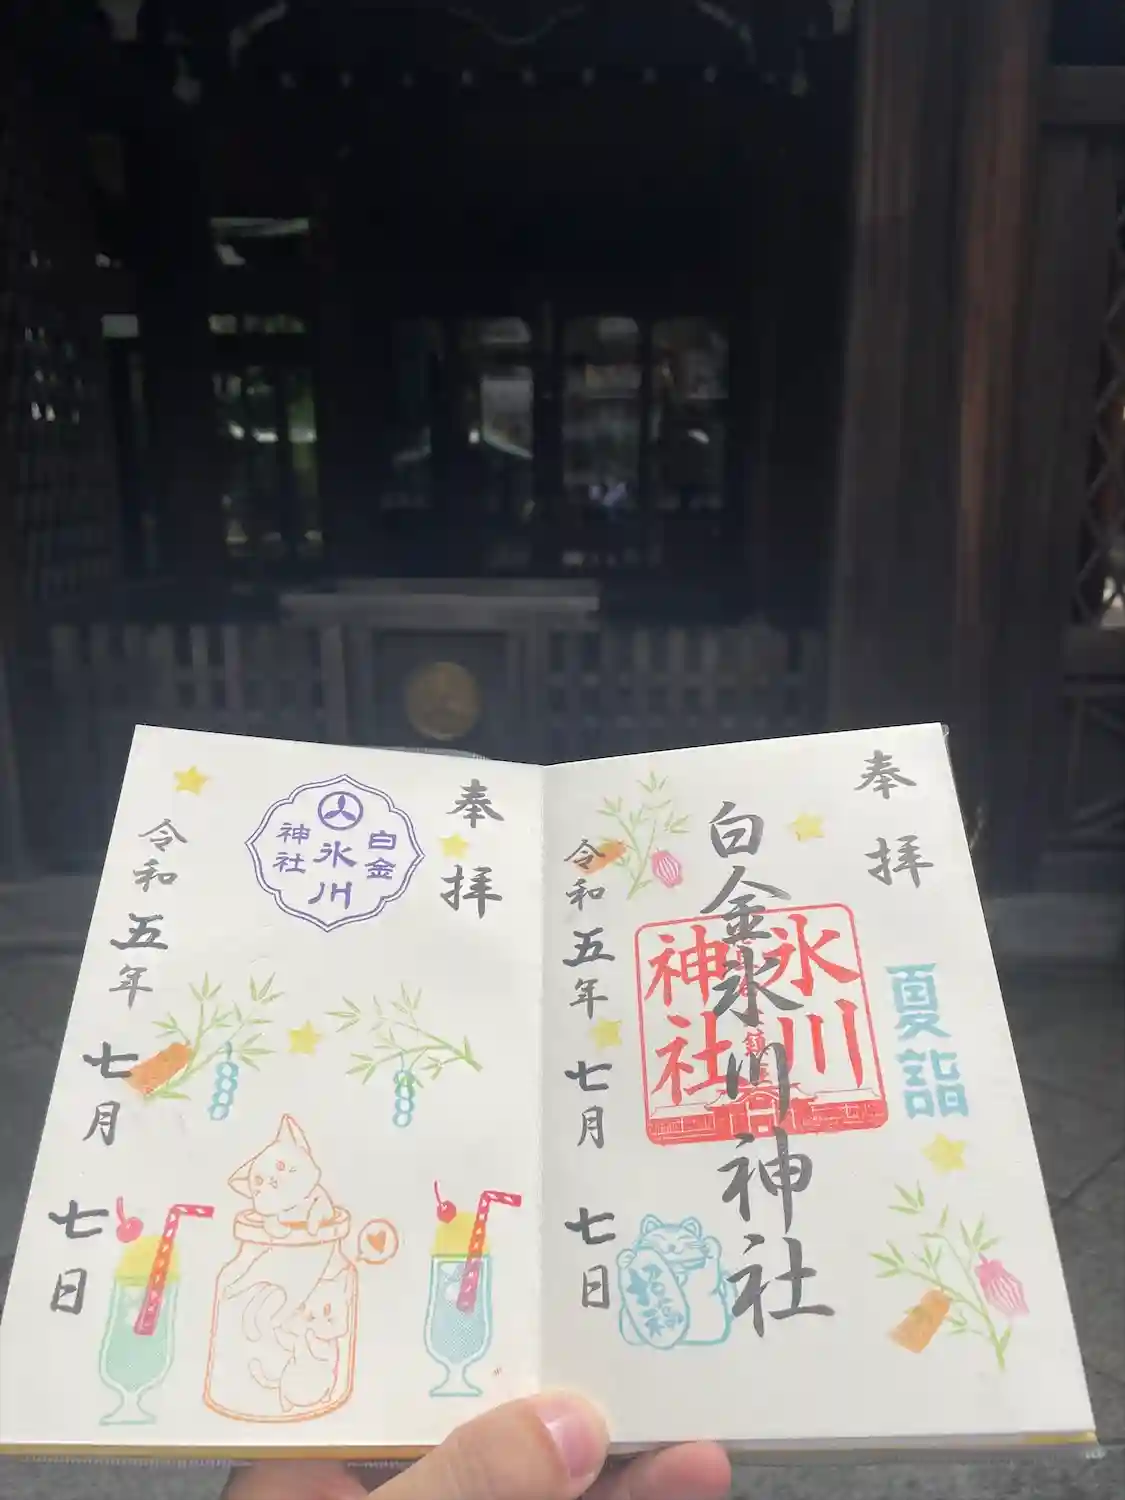 奉拝
夏詣
白金氷川神社
氷川
神社
令和五年 七月 七日
招福
奉拝
白金
氷川
神社
令和五年 七月 七日